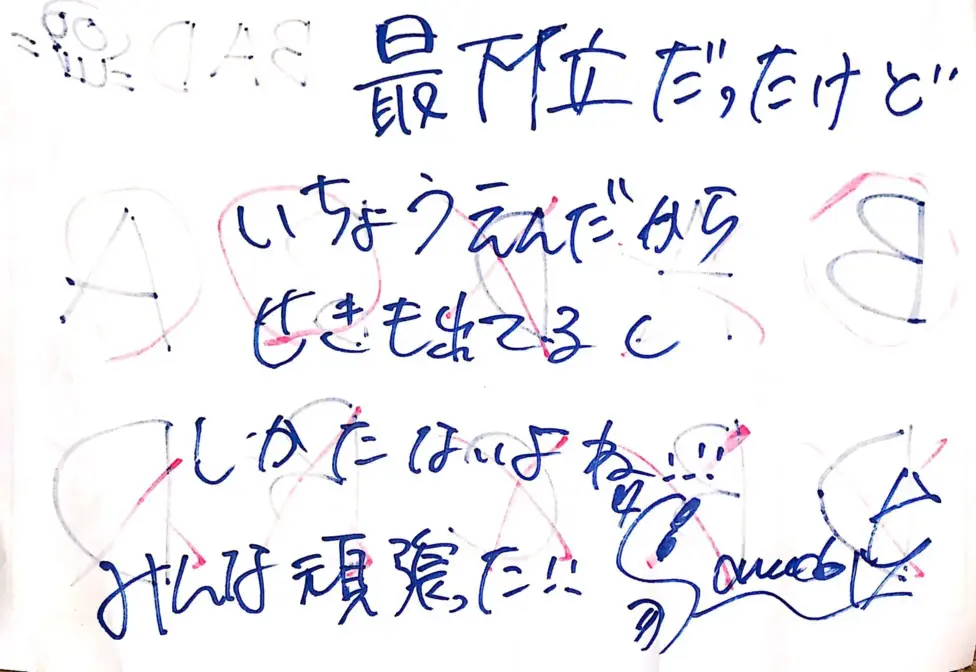 最下位だったけど
いちょうえんだから
せきも出てるし
しかたないよね!!!
みんな頑張った!!